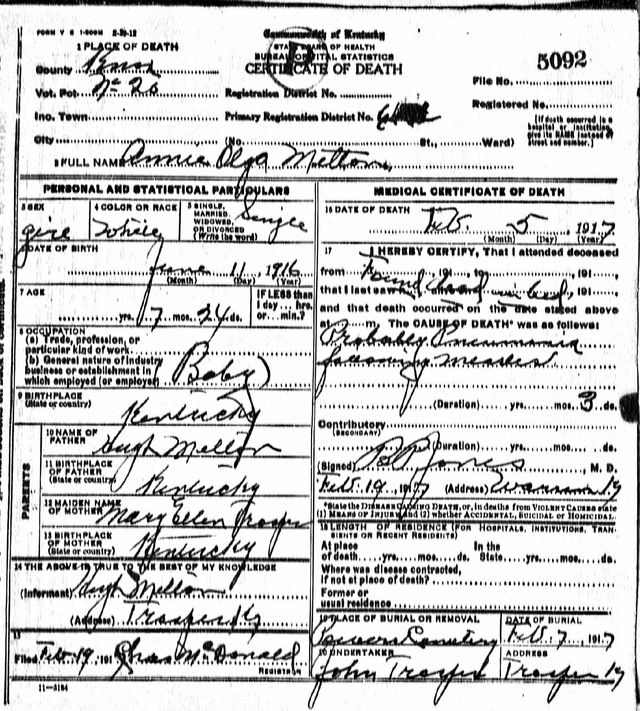 FORM V S 1-500M 2-29-12
Commonwealth of Kentucky
STATE BOARD OF HEALTH
BUREAU OF VITAL STATISTICS
CERTIFICATE OF DEATH
5092
1 PLACE OF DEATH
County Knox
Vot. Pct. No 20
Inc. Town
City
Registration District No.
Primary Registration District No.
(No. St., Ward)
File No.
Registered No.
[If death occurred in a
hospital or institution,
give its NAME instead of
street and number.]
2 FULL NAME Annie Olga Melton
PERSONAL AND STATISTICAL PARTICULARS
3 SEX
girl
4 COLOR OR RACE
White
5 SINGLE,
MARRIED
WIDOWED,
OR DIVORCED
(Write the word)
Single
6 DATE OF BIRTH
June 11, 1916
(Month) (Day) (Year)
7 AGE
yrs. 7 mos. 24 ds.
IF LESS than
1 day... hrs.
or... min.?
8 OCCUPATION
(a) Trade, profession, or
particular kind of work
(b) General nature of industry
business or establishment in
which employed (or employer)
Baby
9 BIRTHPLACE
(State or country)
Kentucky
PARENTS
10 NAME OF
FATHER
Hugh Melton
11 BIRTHPLACE
OF FATHER
(State or country)
Kentucky
12 MAIDEN NAME
OF MOTHER
Mary Ellen Trosper
13 BIRTHPLACE
OF MOTHER
(State or country)
Kentucky
14 THE ABOVE IS TRUE TO THE BEST OF MY KNOWLEDGE
(Informant) Hugh Melton
(Address) Trosper Ky
15
Filed Feb 19 1917 Chas McDonald
REGISTRAR
11-3184
MEDICAL CERTIFICATE OF DEATH
16 DATE OF DEATH
Feb. 5, 1917
(Month) (Day) (Year)
17 I HEREBY CERTIFY, That I attended deceased
from Found, 191, to, 191,
that I last saw h dead in bed, 191,
and that death occurred on the date stated above
at m. The CAUSE OF DEATH* was as follows:
Probably Pneumonia
following Measles
(Duration) yrs. mos. 3 ds.
Contributory
(SECONDARY)
(Duration) yrs. mos. ds.
(Signed) B P Jones, M. D.
Feb. 19, 1917 (Address) Warren Ky
*State the DISEASE CAUSING DEATH, or, in deaths from VIOLENT CAUSES state
(1) MEANS OF INJURY and (2) whether ACCIDENTAL, SUICIDAL OR HOMICIDAL.
18 LENGTH OF RESIDENCE (FOR HOSPITALS, INSTITUTIONS, TRAN-
SIENTS OR RECENT RESIDENTS)
At place In the
of death yrs. mos. ds. State yrs. mos. ds.
Where was disease contracted,
if not at place of death?
Former or
usual residence
19 PLACE OF BURIAL OR REMOVAL
Cemetery
DATE OF BURIAL
Feb. 7, 1917
20 UNDERTAKER
John Trosper
ADDRESS
Trosper Ky